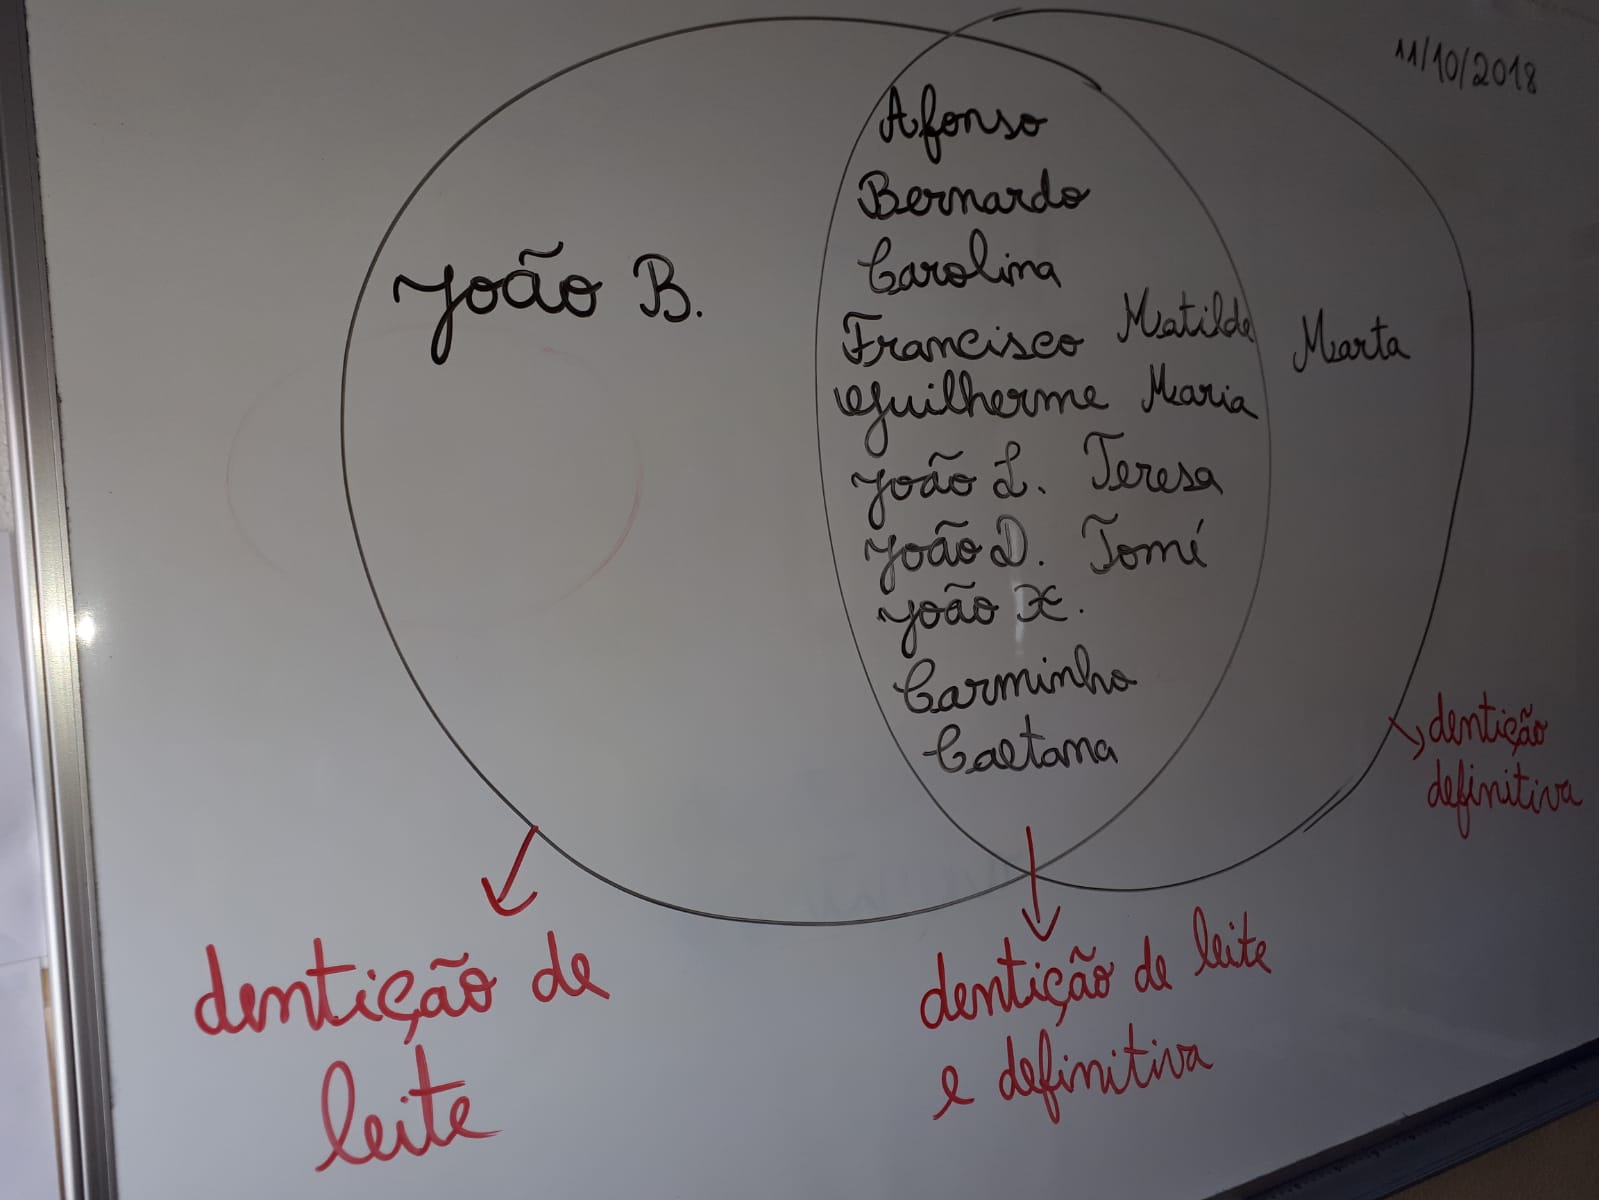 11/10/2018
João B.
Afonso
Bernardo
Carolina
Francisco Matilde
Guilherme Maria
Marta
João L. Teresa
João D. Tomé
João X.
Carminho
Caetana
dentição
definitiva
dentição de
leite
dentição de leite
e definitiva